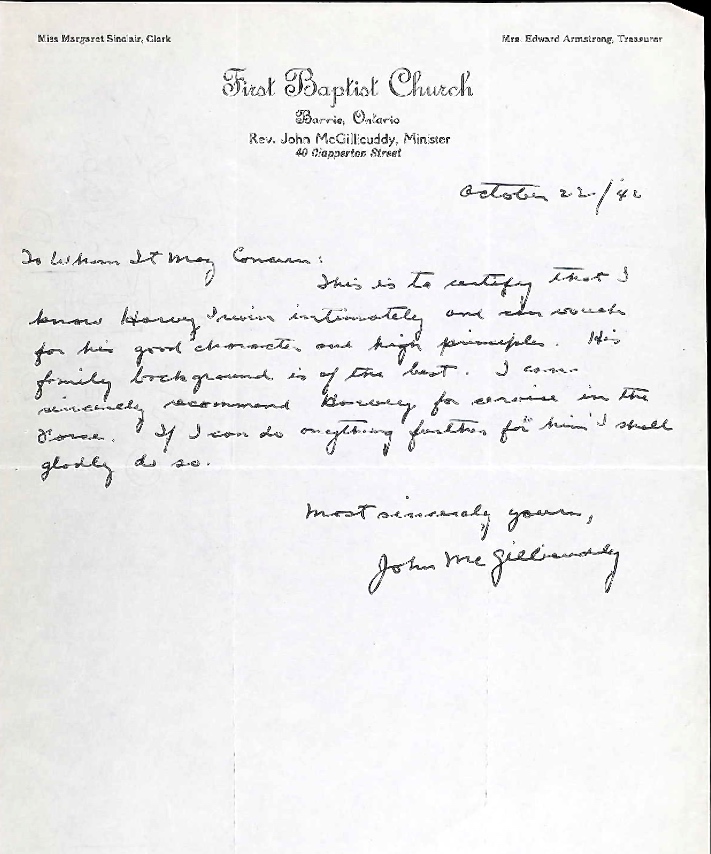 Miss Margaret Sinclair, Clerk
Mrs. Edward Armstrong, Treasurer
First Baptist Church
Barrie, Ontario
Rev. John McGillicuddy, Minister
40 Clapperton Street
October 22/42
To Whom It May Concern:
This is to certify that I
know Harvey Irwin intimately and can vouch
for his good character and high principles. His
family background is of the best. I can
sincerely recommend Harvey for service in the
Force. If I can do anything further for him I shall
gladly do so.
Most sincerely yours,
John McGillicuddy